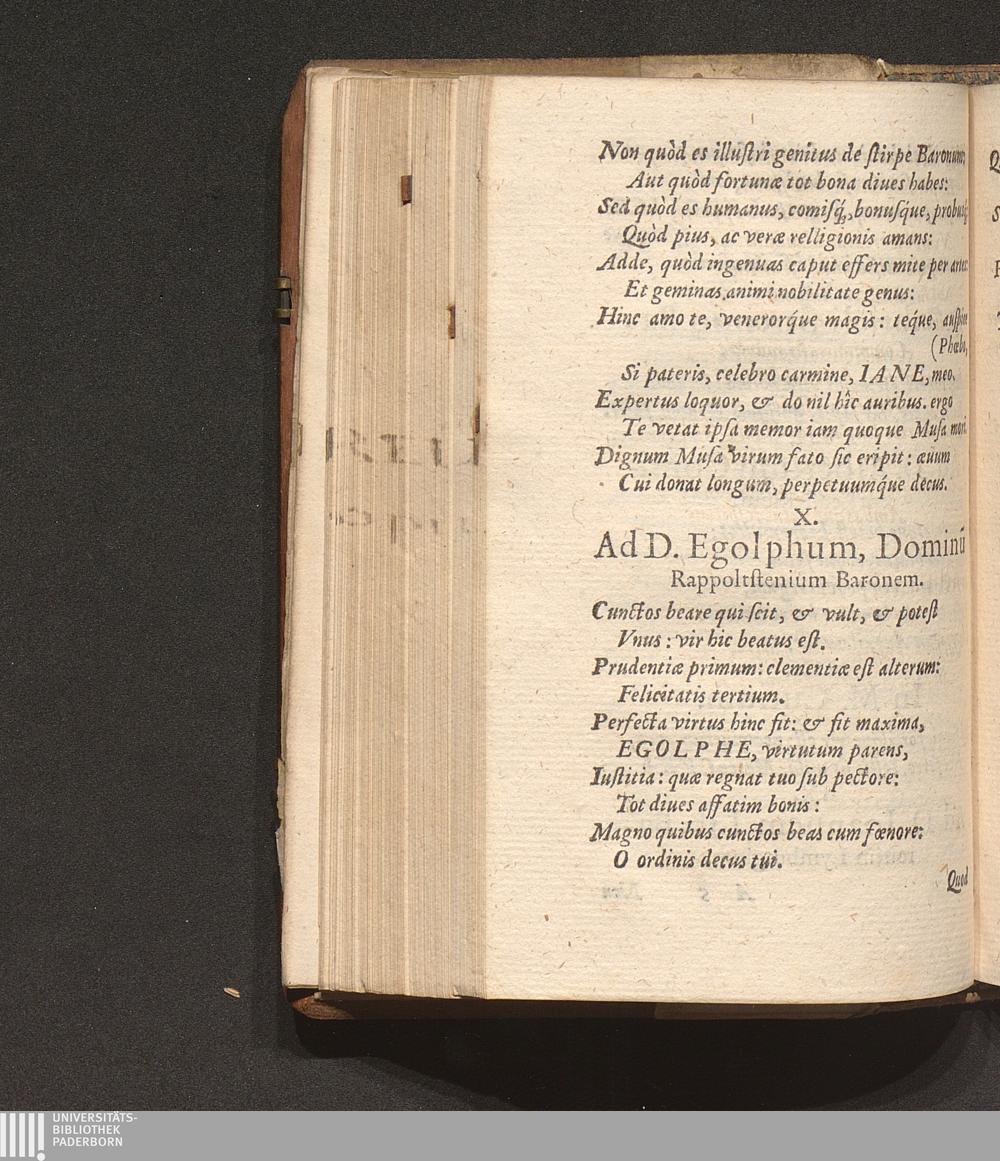 Non quòd es illuſtri genitus de ſtirpe Baronum:
Aut quòd fortunæ tot bona diues habes:
Sed quòd es humanus, comiſq́, bonuſq́ue, probuſq́;
Quòd pius, ac veræ relligionis amans:
Adde, quòd ingenuas caput effers mite per artes:
Et geminas animi nobilitate genus:
Hinc amo te, venerorq́ue magis: teq́ue, auſpice
(Phœbo,
Si pateris, celebro carmine, IANE, meo.
Expertus loquor, & do nil hîc auribus. ergo
Te vetat ipſa memor iam quoque Muſa mori.
Dignum Muſa virum fato ſic eripit: æuum
Cui donat longum, perpetuumq́ue decus.
X.
Ad D. Egolphum, Dominū
Rappoltſtenium Baronem.
Cunctos beare qui ſcit, & vult, & poteſt
Vnus: vir hic beatus eſt.
Prudentiæ primum: clementiæ eſt alterum:
Felicitatis tertium.
Perfecta virtus hinc fit: & fit maxima,
EGOLPHE, virtutum parens,
Iuſtitia: quæ regnat tuo ſub pectore:
Tot diues affatim bonis:
Magno quibus cunctos beas cum fœnore:
O ordinis decus tui.
Quod
UNIVERSITÄTS-
BIBLIOTHEK
PADERBORN